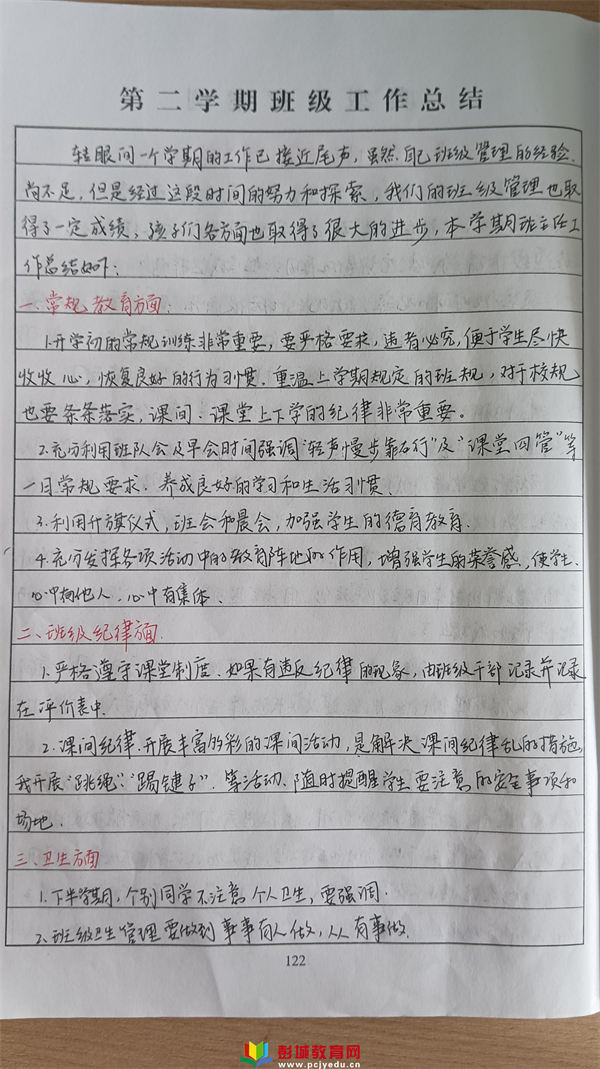 第二学期班级工作总结
转眼间一个学期的工作已接近尾声，虽然自己班级管理的经验
尚不足，但是经过这段时间的努力和探索，我们的班级管理也取
得了一定成绩，孩子们各方面也取得了很大的进步，本学期班主任工
作总结如下：
一、常规教育方面：
1.开学初的常规训练非常重要，要严格要求，违者必究，便于学生尽快
收收心，恢复良好的行为习惯．重温上学期规定的班规，对于校规
也要条条落实，课间、课堂上下学的纪律非常重要。
2.充分利用班队会及早会时间强调"轻声慢步靠右行"及"课堂四管"等
一日常规要求．养成良好的学习和生活习惯．
3.利用升旗仪式，班会和晨会，加强学生的德育教育．
4.充分发挥各项活动中的教育阵地的作用，增强学生的荣誉感，使学生
心中有他人．心中有集体．
二、班级纪律方面．
1.严格遵守课堂制度．如果有违反纪律的现象，由班级干部记录并记录
在评价表中．
2.课间纪律．开展丰富多彩的课间活动，是解决课间纪律乱的措施，
我开展"跳绳"、"踢键子"．等活动、随时提醒学生要注意的安全事项和
场地．
三、卫生方面
1.下半学期，个别同学不注意个人卫生，要强调．
2.班级卫生管理要做到事事有人做，人人有事做．
122
彭城教育网
www.pcjyedu.cn